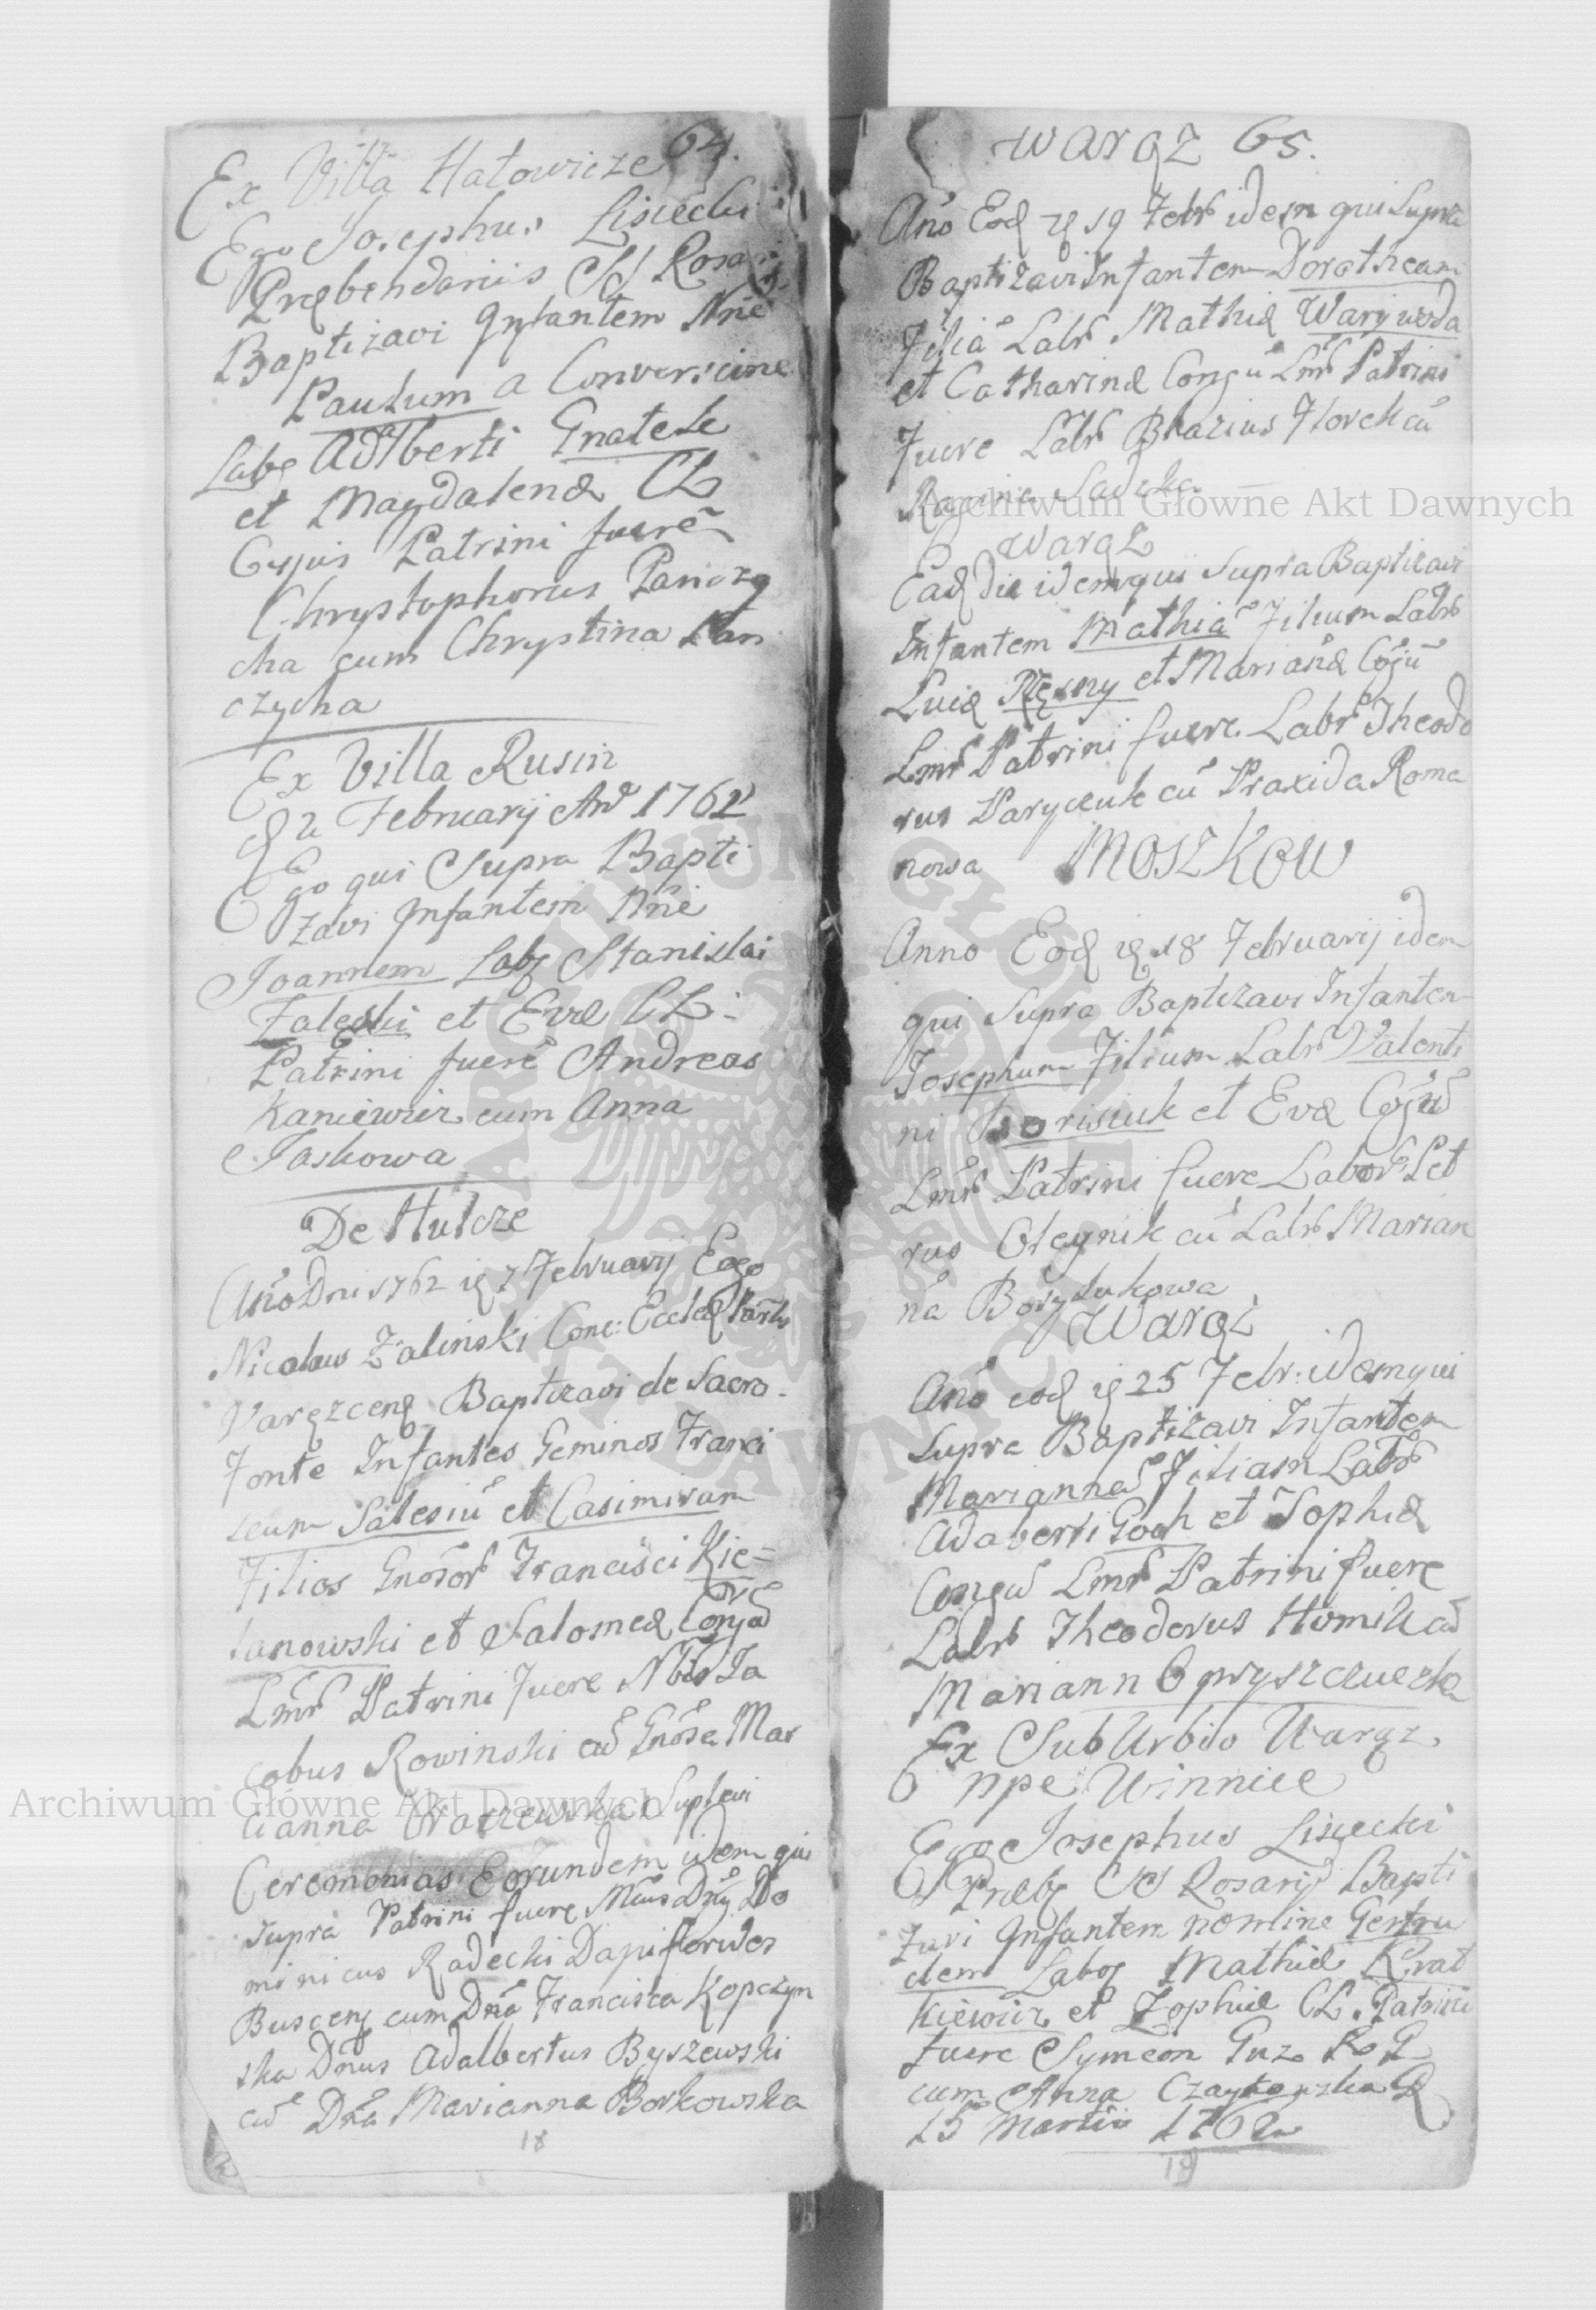 64.
Ex Villa Hatowicze
Ego Josephus Lisiecki
Præbendarius SS Rosarij
Baptizavi Infantem Nñe
Paulum a Conversione
Labę Adalberti Gnatek
et Magdalenæ CL
Cujus Patrini fuerẽ
Chrystophorus Panczy
cha cum Chrystina Pan
czycha
Ex Villa Rusin
D 2 Februarij Año 1762
Ego qui Supra Bapti
zavi Infantem Nñe
Joannem Labę Stanislai
Zaleski et Evæ CL:
Patrini fuerẽ Andreas
Kaniewicz cum Anna
Jaskowa
De Hulcze
Año Dni 1762 7 Februarij Ego
Nicolaus Zalinski Conc: Ecclæ
Varęzcenę Baptizavi de Sacro
Fonte Infantes Geminos Franci
scum Salesiũ et Casimiram
Filios Gnõsor Francisci Kie=
lanowski et Salomeæ Conjũ
Lmõr Patrini Fuere Nbis Ja
cobus Rowinski cũ Gnõsa Mar
cianna Suplevi
Ceremonias Eorundem idem qui
supra Patrini fuere Dñs Do
minicus Radecki Dapiferides
Buscenę cum Dñã Francisca Kopczyn
ska Dñus Adalbertus Byszewski
cũ Dñã Marianna Borkowska
18
Warąz 65.
Año Eod 19 Febr idem qui Supra
Baptizavi Infantem Dorotheam
Filiã Labr Mathiæ
et Catharinæ Congũ Lmr Patrini
Fuere Labr Blazius Florek cũ
Regina Sadzka
Warąz
Eadę die idem qui Supra Baptizavi
Infantem Mathiã Filium Labr
Lucæ Rężny et Mariañæ Cõgũ
Lmr Patrini fuere Labr Theodo
rus Paryczuk cũ Praxida Roma
nowa
Moszkow
Anno Eod 18 Februarij idem
qui Supra Baptizavi Infantem
Josephum Filium Labr Valenti
ni Borisiuk et Evæ Cõgũ
Lmr Patrini fuere Labor Pet
rus Oleynik cũ Labr Marian
na Borysukowa
Warąz
Año eod 25 Febr: idem qui
Supra Baptizavi Infantem
Mariannã Filiam Labr
Adalberti Goch et Sophiæ
Congũ Lmr Patrini fuere
Labr Theodorus Homik cũ
Mariann Opryszczueska
Ex SubUrbio Warąz
npe Winnice
Ego Josephus Lisiecki
Præbę SS Rosarij Bapti
zavi Infantem nomine Gertru
dem Labog Mathiæ Krat
kiewicz et Zophiæ CL. Patrini
fuere Symeon Guz
cum Anna Czaykowska
15 Martii 1762
19
Archiwum Główne Akt Dawnych
Archiwum Główne Akt Dawnych
ARCHIWUM GŁÓWNE AKT DAWNYCH